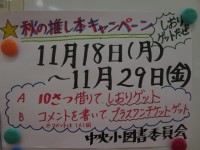 秋の推し本キャンペーン
しおりゲットだぜ
11月18日(月)
～11月29日(金)
A 10さつ借りてしおりゲット
B コメントを書いてプラスワンチケットゲット
中央小図書委員会